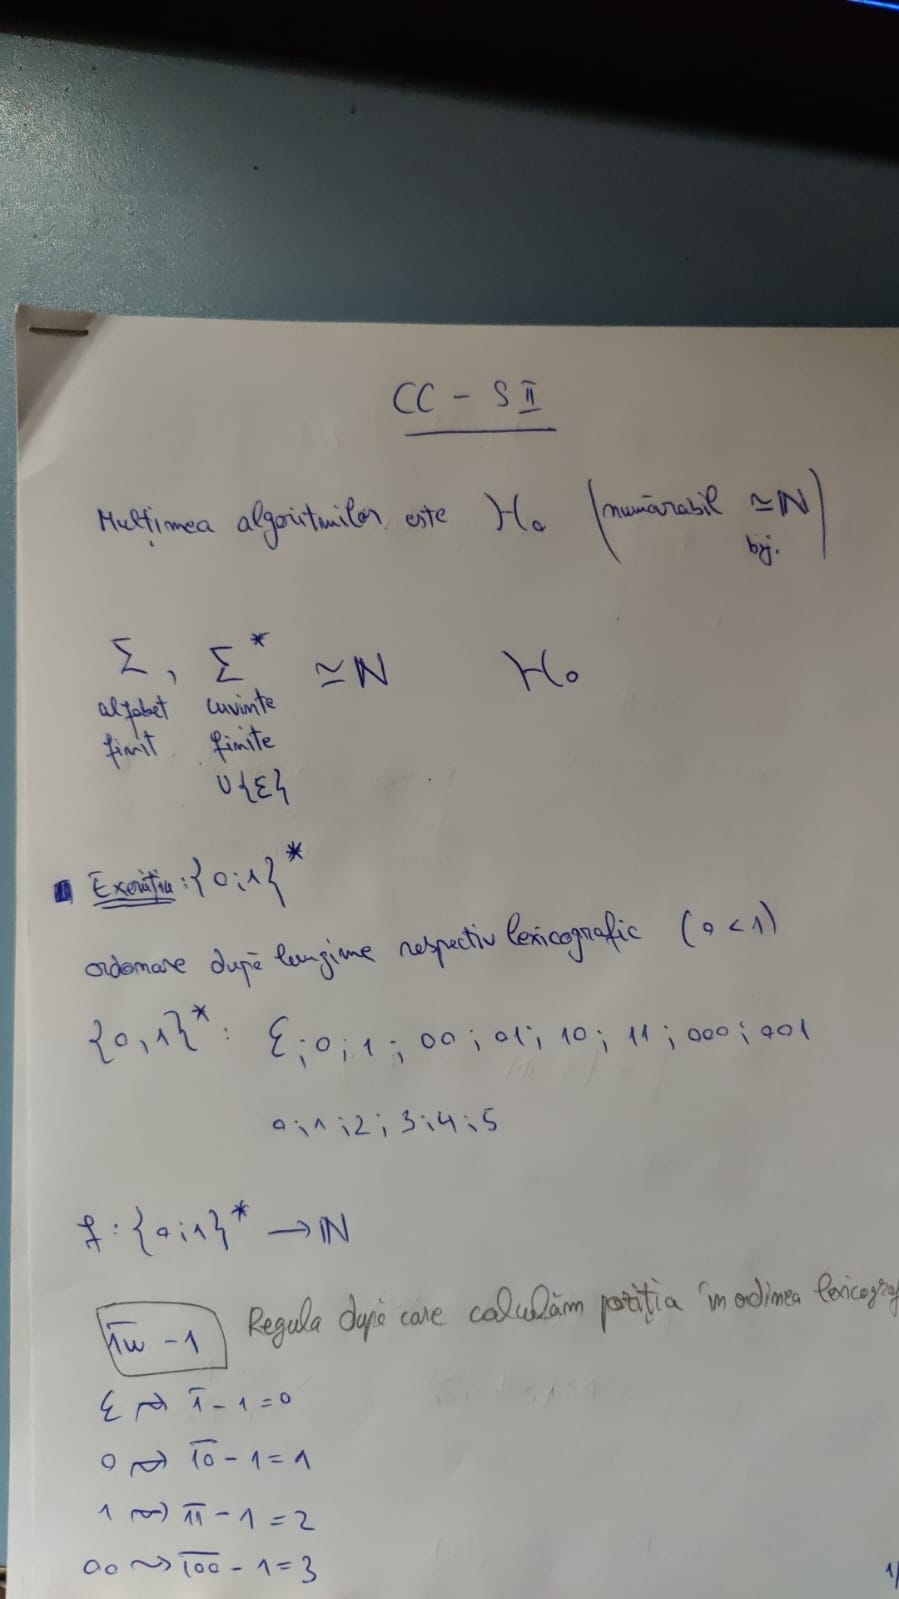 CC - S II
Mulțimea algoritmilor este ℵ₀ (numărabil ≃ ℕ)
bij.
Σ, Σ* ≃ ℕ ℵ₀
alfabet cuvinte
finit finite
∪{ε}
Exercițiu: {0;1}*
ordonare după lungime respectiv lexicografic (0 < 1)
{0,1}*: ε; 0; 1; 00; 01; 10; 11; 000; 001
0; 1; 2; 3; 4; 5
f: {0;1}* → ℕ
1̅w̅ - 1 Regula după care calculăm poziția în ordinea lexicograf
ε ⇝ 1̅ - 1 = 0
0 ⇝ 1̅0̅ - 1 = 1
1 ⇝ 1̅1̅ - 1 = 2
00 ⇝ 1̅0̅0̅ - 1 = 3
1/